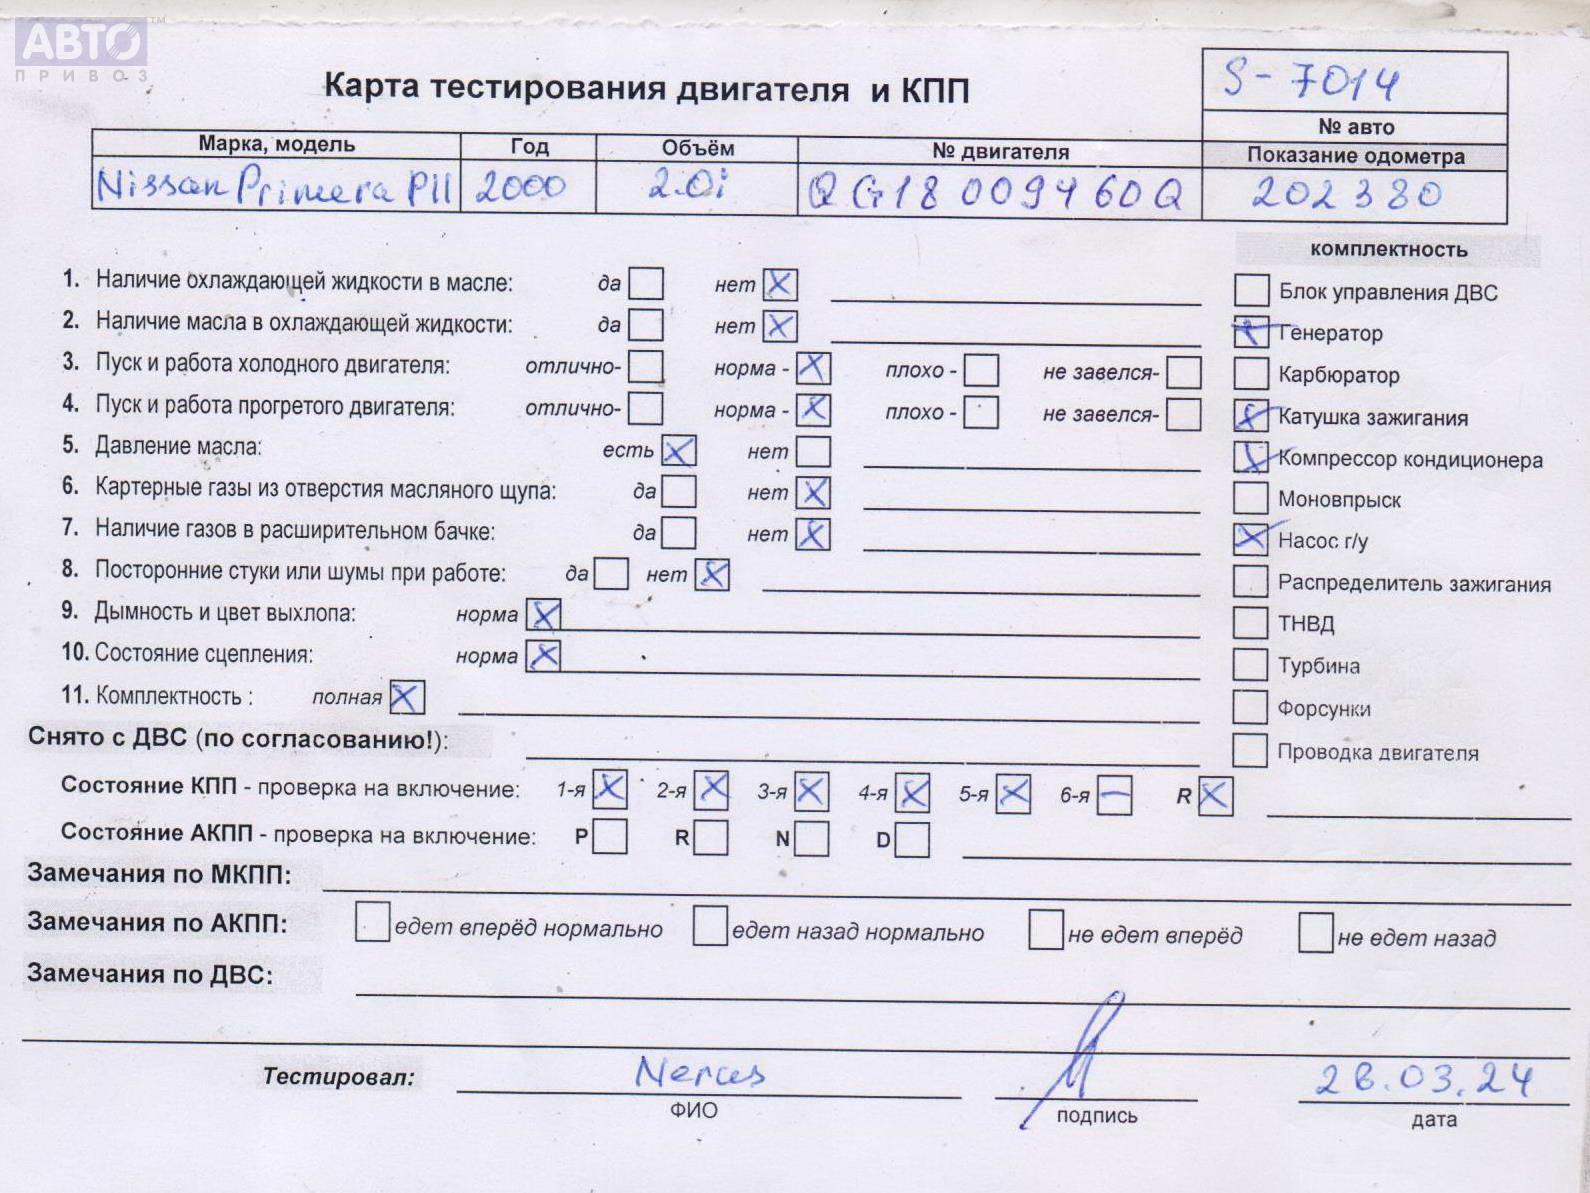 АВТО™
ПРИВОЗ
Карта тестирования двигателя и КПП
S-7014
№ авто
Марка, модель Год Объём № двигателя Показание одометра
Nissan Primera P11 2000 2.0i QG18 009460Q 202380
комплектность
1. Наличие охлаждающей жидкости в масле: да нет
2. Наличие масла в охлаждающей жидкости: да нет
3. Пуск и работа холодного двигателя: отлично- норма - плохо - не завелся-
4. Пуск и работа прогретого двигателя: отлично- норма - плохо - не завелся-
5. Давление масла: есть нет
6. Картерные газы из отверстия масляного щупа: да нет
7. Наличие газов в расширительном бачке: да нет
8. Посторонние стуки или шумы при работе: да нет
9. Дымность и цвет выхлопа: норма
10. Состояние сцепления: норма
11. Комплектность : полная
Блок управления ДВС
Генератор
Карбюратор
Катушка зажигания
Компрессор кондиционера
Моновпрыск
Насос г/у
Распределитель зажигания
ТНВД
Турбина
Форсунки
Проводка двигателя
Снято с ДВС (по согласованию!):
Состояние КПП - проверка на включение: 1-я 2-я 3-я 4-я 5-я 6-я R
Состояние АКПП - проверка на включение: P R N D
Замечания по МКПП:
Замечания по АКПП: едет вперёд нормально едет назад нормально не едет вперёд не едет назад
Замечания по ДВС:
Тестировал:
ФИО подпись дата